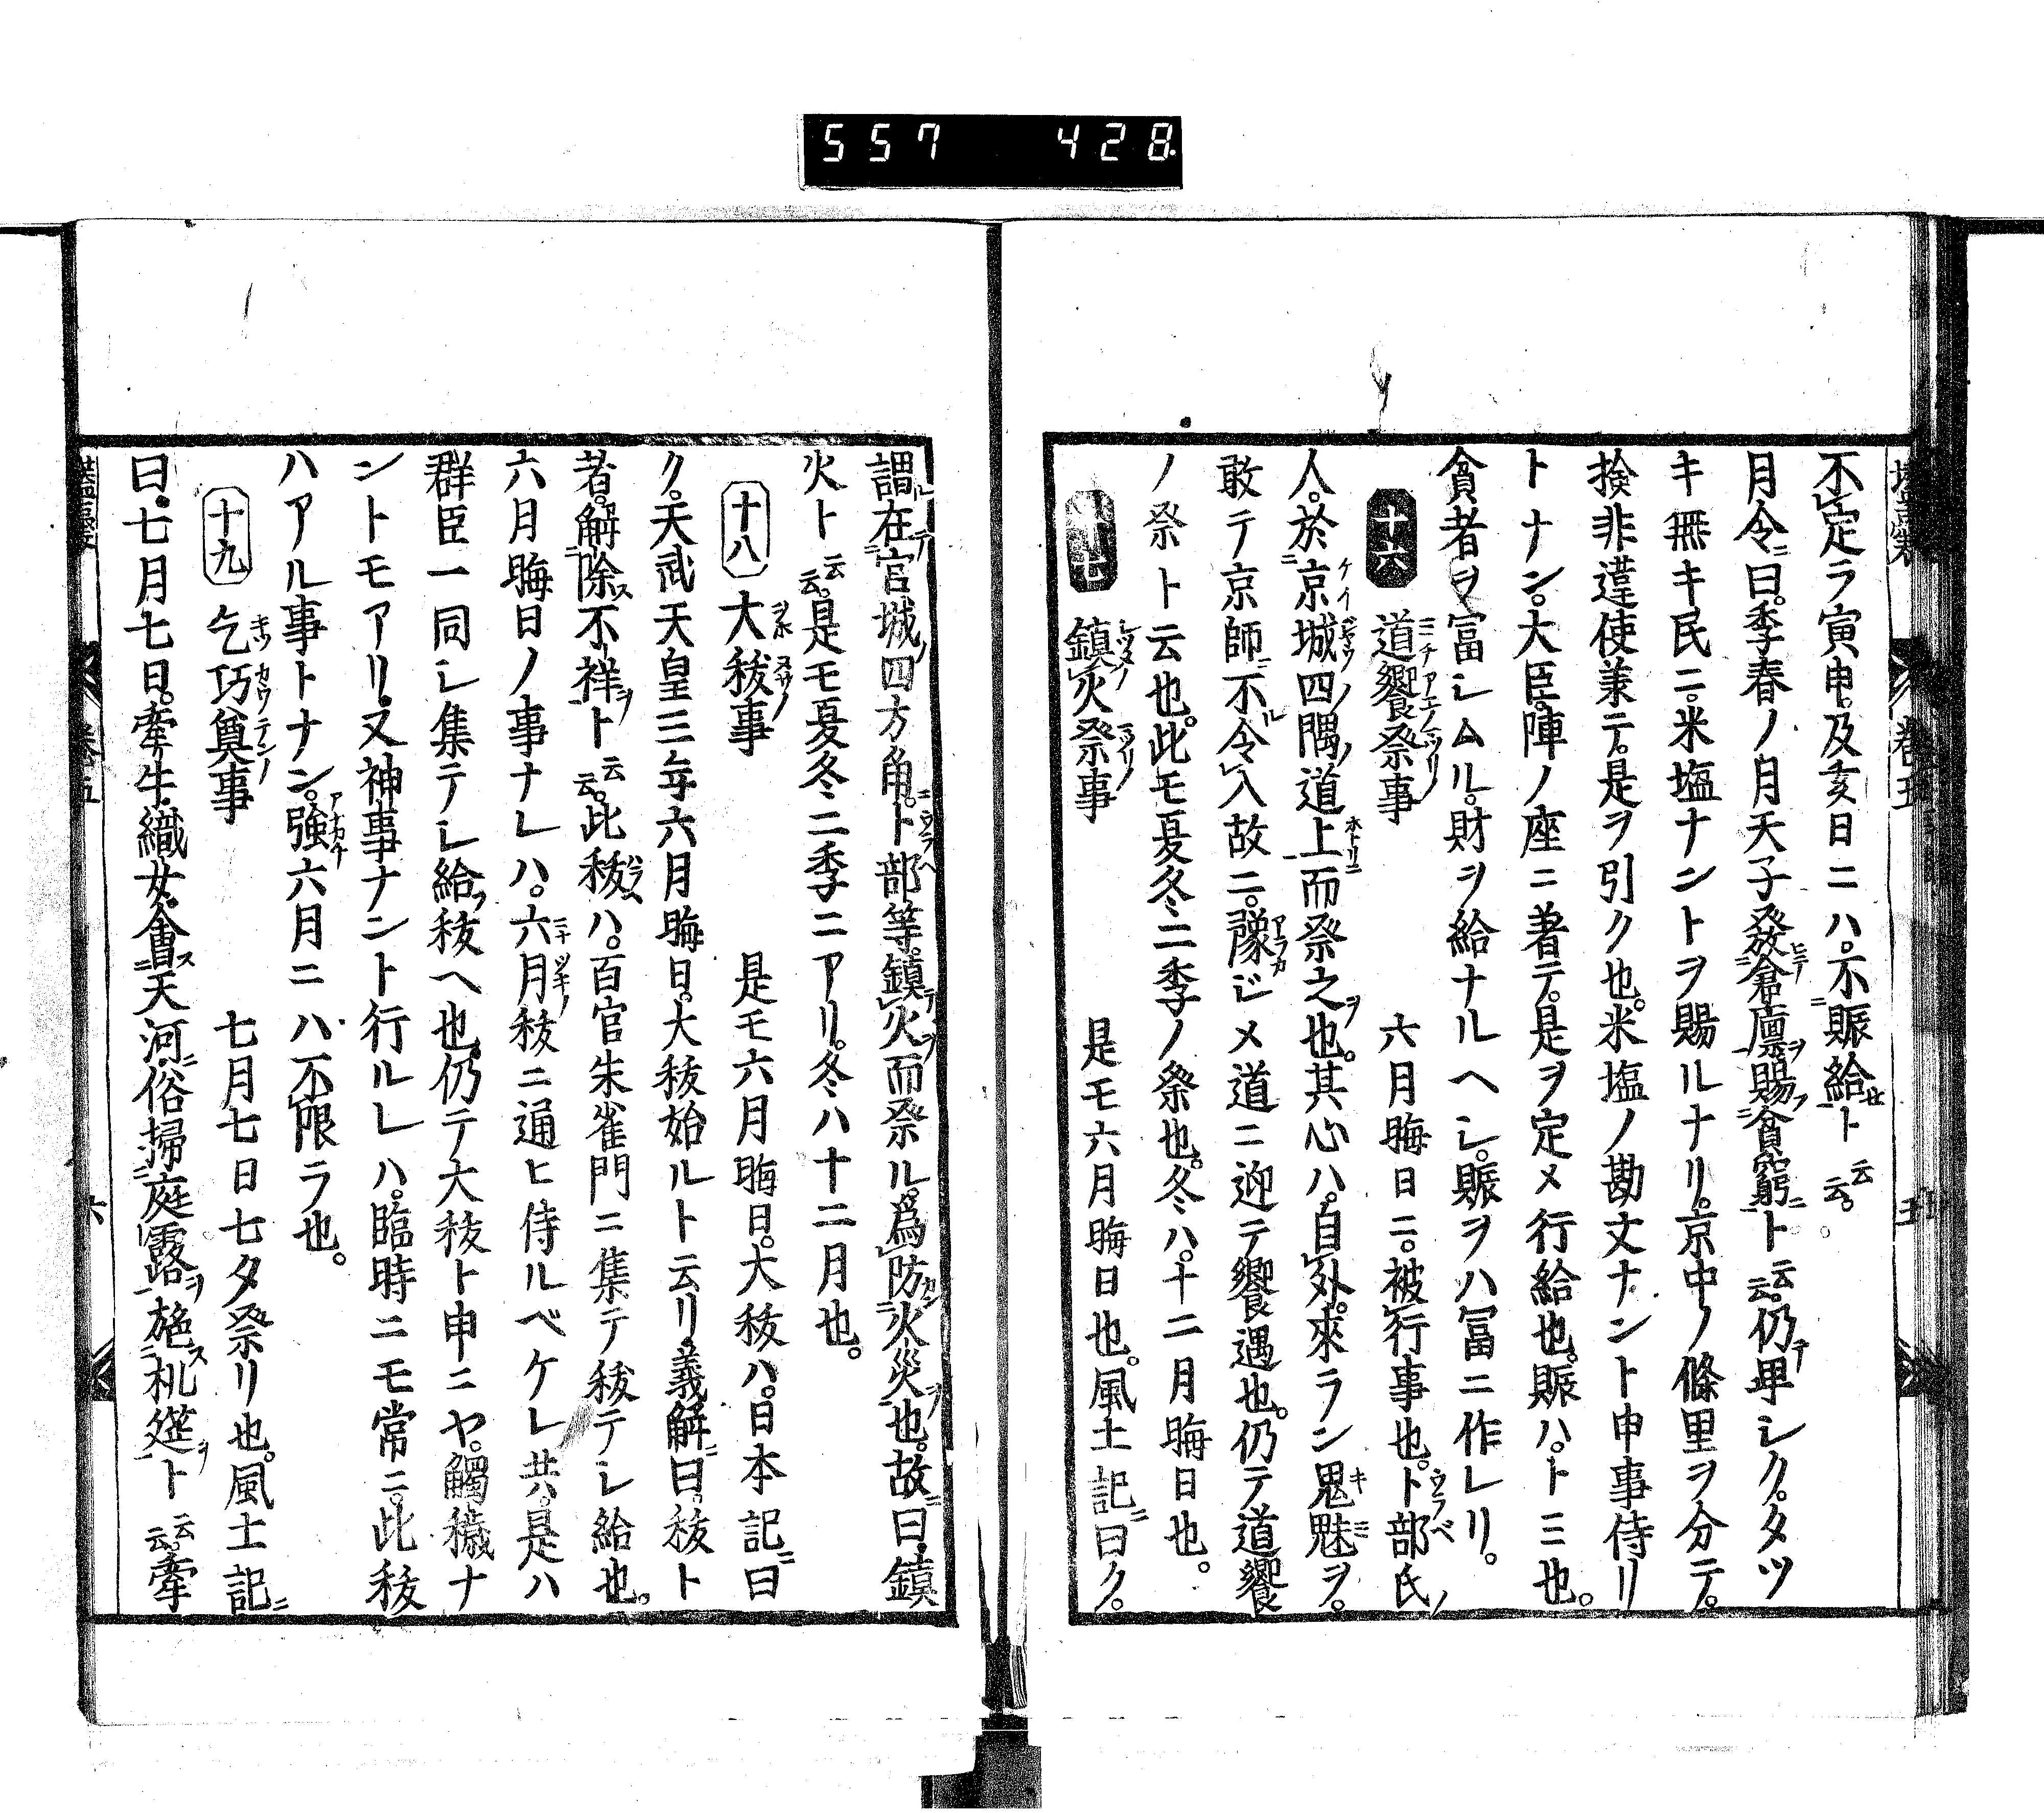 557 428
不定ラ寅申。及亥日ニハ。不賑給ト云云。
月令ニ曰。季春ノ月天子発倉廩賜貧窮ト云云。仍畢シク。タツ
キ無キ民ニ。米塩ナントヲ賜ルナリ。京中ノ條里ヲ分テ。
撿非違使兼テ。是ヲ引ク也。米塩ノ勘文ナント申事侍リ
トナン。大臣。陣ノ座ニ著テ。是ヲ定メ行給也。賑ハ。ト三也。
貧者ヲ冨シムル。財ヲ給ナルヘシ。賑ヲハ冨ニ作レリ。
十六 道饗祭事 六月晦日ニ。被行事也。卜部氏ノ
人。於京城四隅道上而祭之也。其心ハ。自外。來ラン鬼魅ヲ。
敢テ京師ニ不令入故ニ。豫ジメ道ニ迎テ饗遇也。仍テ道饗
ノ祭ト云也。此モ夏冬二季ノ祭也。冬ハ。十二月晦日也。
十七 鎮火祭事 是モ六月晦日也。風土記ニ曰ク。
謂在官城四方角。卜部等。鎮火而祭ル。爲防火災也。故ニ曰。鎮
火ト云云。是モ夏冬二季ニアリ。冬ハ十二月也。
十八 大秡事 是モ六月晦日。大秡ハ。日本記ニ曰
ク。天武天皇三年六月晦日。大秡始ルト云リ。義解ニ曰。秡ト
者。解除不祥ヲト云云。此秡ハ。百官朱雀門ニ集テ秡テシ給也。
六月晦日ノ事ナレハ。六月秡ニ通ヒ侍ルベケレ共。是ハ
群臣一同シ集テシ給フ秡ヘ也。仍テ大秡ト申ニヤ。觸穢ナ
ントモアリ。又神事ナント行ルレハ。臨時ニモ常ニ。此秡
ハアル事トナン。強六月ニハ不限ラ也。
十九 乞巧奠事 七月七日七夕祭リ也。風土記ニ
曰。七月七日。牽牛。織女。會天河。俗掃庭露施机筵ト云云。牽